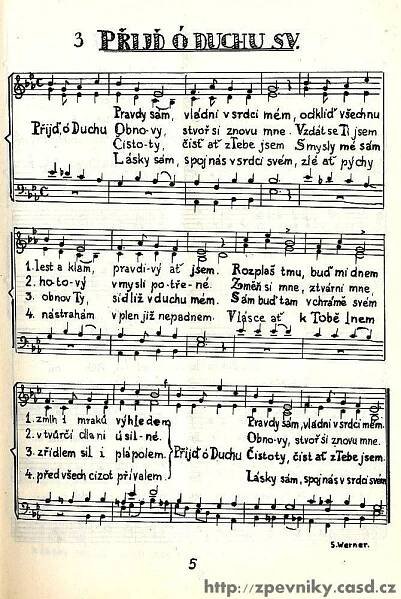 3 PŘIJĎ Ó DUCHU SV.
Pravdy sám, vládni v srdci mém, odkliď všechnu
Přijď, ó Duchu Obno-vy, stvoř si znovu mne. Vzdát se Ti jsem
Čisto-ty, čist ať z Tebe jsem Smysly mé sám
Lásky sám, spoj nás v srdci svém, zlé ať pýchy
1. lest a klam, pravdi-vý ať jsem. Rozplaš tmu, buď mi dnem
2. ho-to-vý v mysli po-tře-né. Změň si mne, ztvární mne,
3. obnov Ty, sídliž v duchu mém. Sám buď tam v chrámě svém
4. nástrahám v plen již nepadnem. Vlásce ať k Tobě lnem
1. zmih i mraků výhledem
2. v tvůrčí dlani úsil-né.
3. zřídlem sil i plápolem.
4. před všech cizot přívalem.
Přijď ó Duchu
Pravdy sám, vládni v srdci mém.
Obno-vy, stvoř si znovu mne.
Čistoty, čist ať z Tebe jsem.
Lásky sám, spoj nás v srdci svém
S. Werner.
5
http://zpevniky.casd.cz